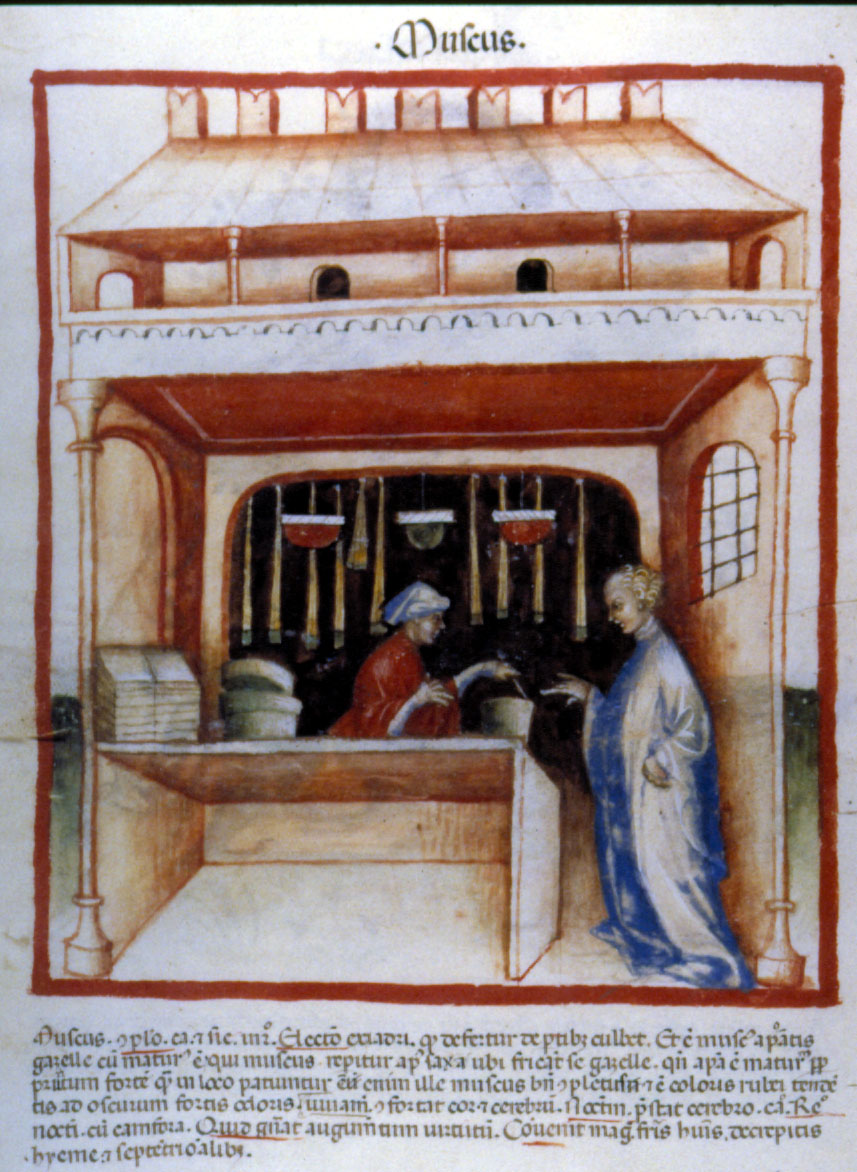 · Muscus ·
Muscus. ꝯplo. ca. ⁊ sic. in 2°. Electo exadri. qd defertur de ptibꝫ culbet. Et ē musc apatis
gazelle cū matur ē qui muscus repitur ap saxa ubi fricat se gazelle. qn apa ē matur pp
fortē in loco patiuntur enim ille muscus bn ꝯpletus ⁊ ē coloris rubei tendē
tis ad oscurum fortis odoris iuuam. ꝯfortat cor ⁊ cerebrū. Nocm. pstat cerebro. ca. Re°
nocti. cū camfora. Quid gnat augumtum uirtutū. Couenit mag fris huis, decrepitis
hyeme ⁊ septetrioalibꝫ.